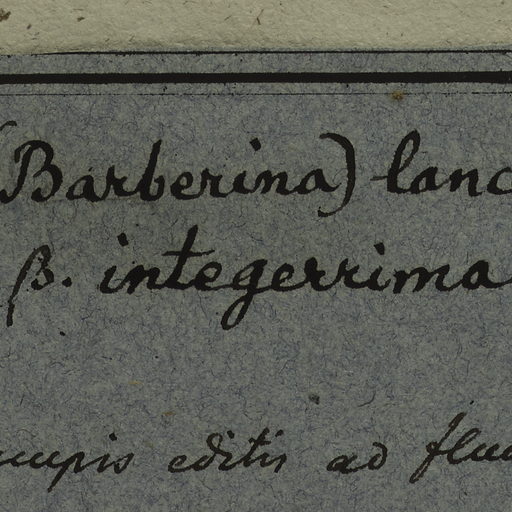 (Barberina) lanc
β. integerrima
editis ad flu